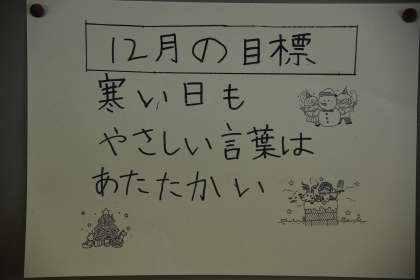 12月の目標
寒い日も
やさしい言葉は
あたたかい